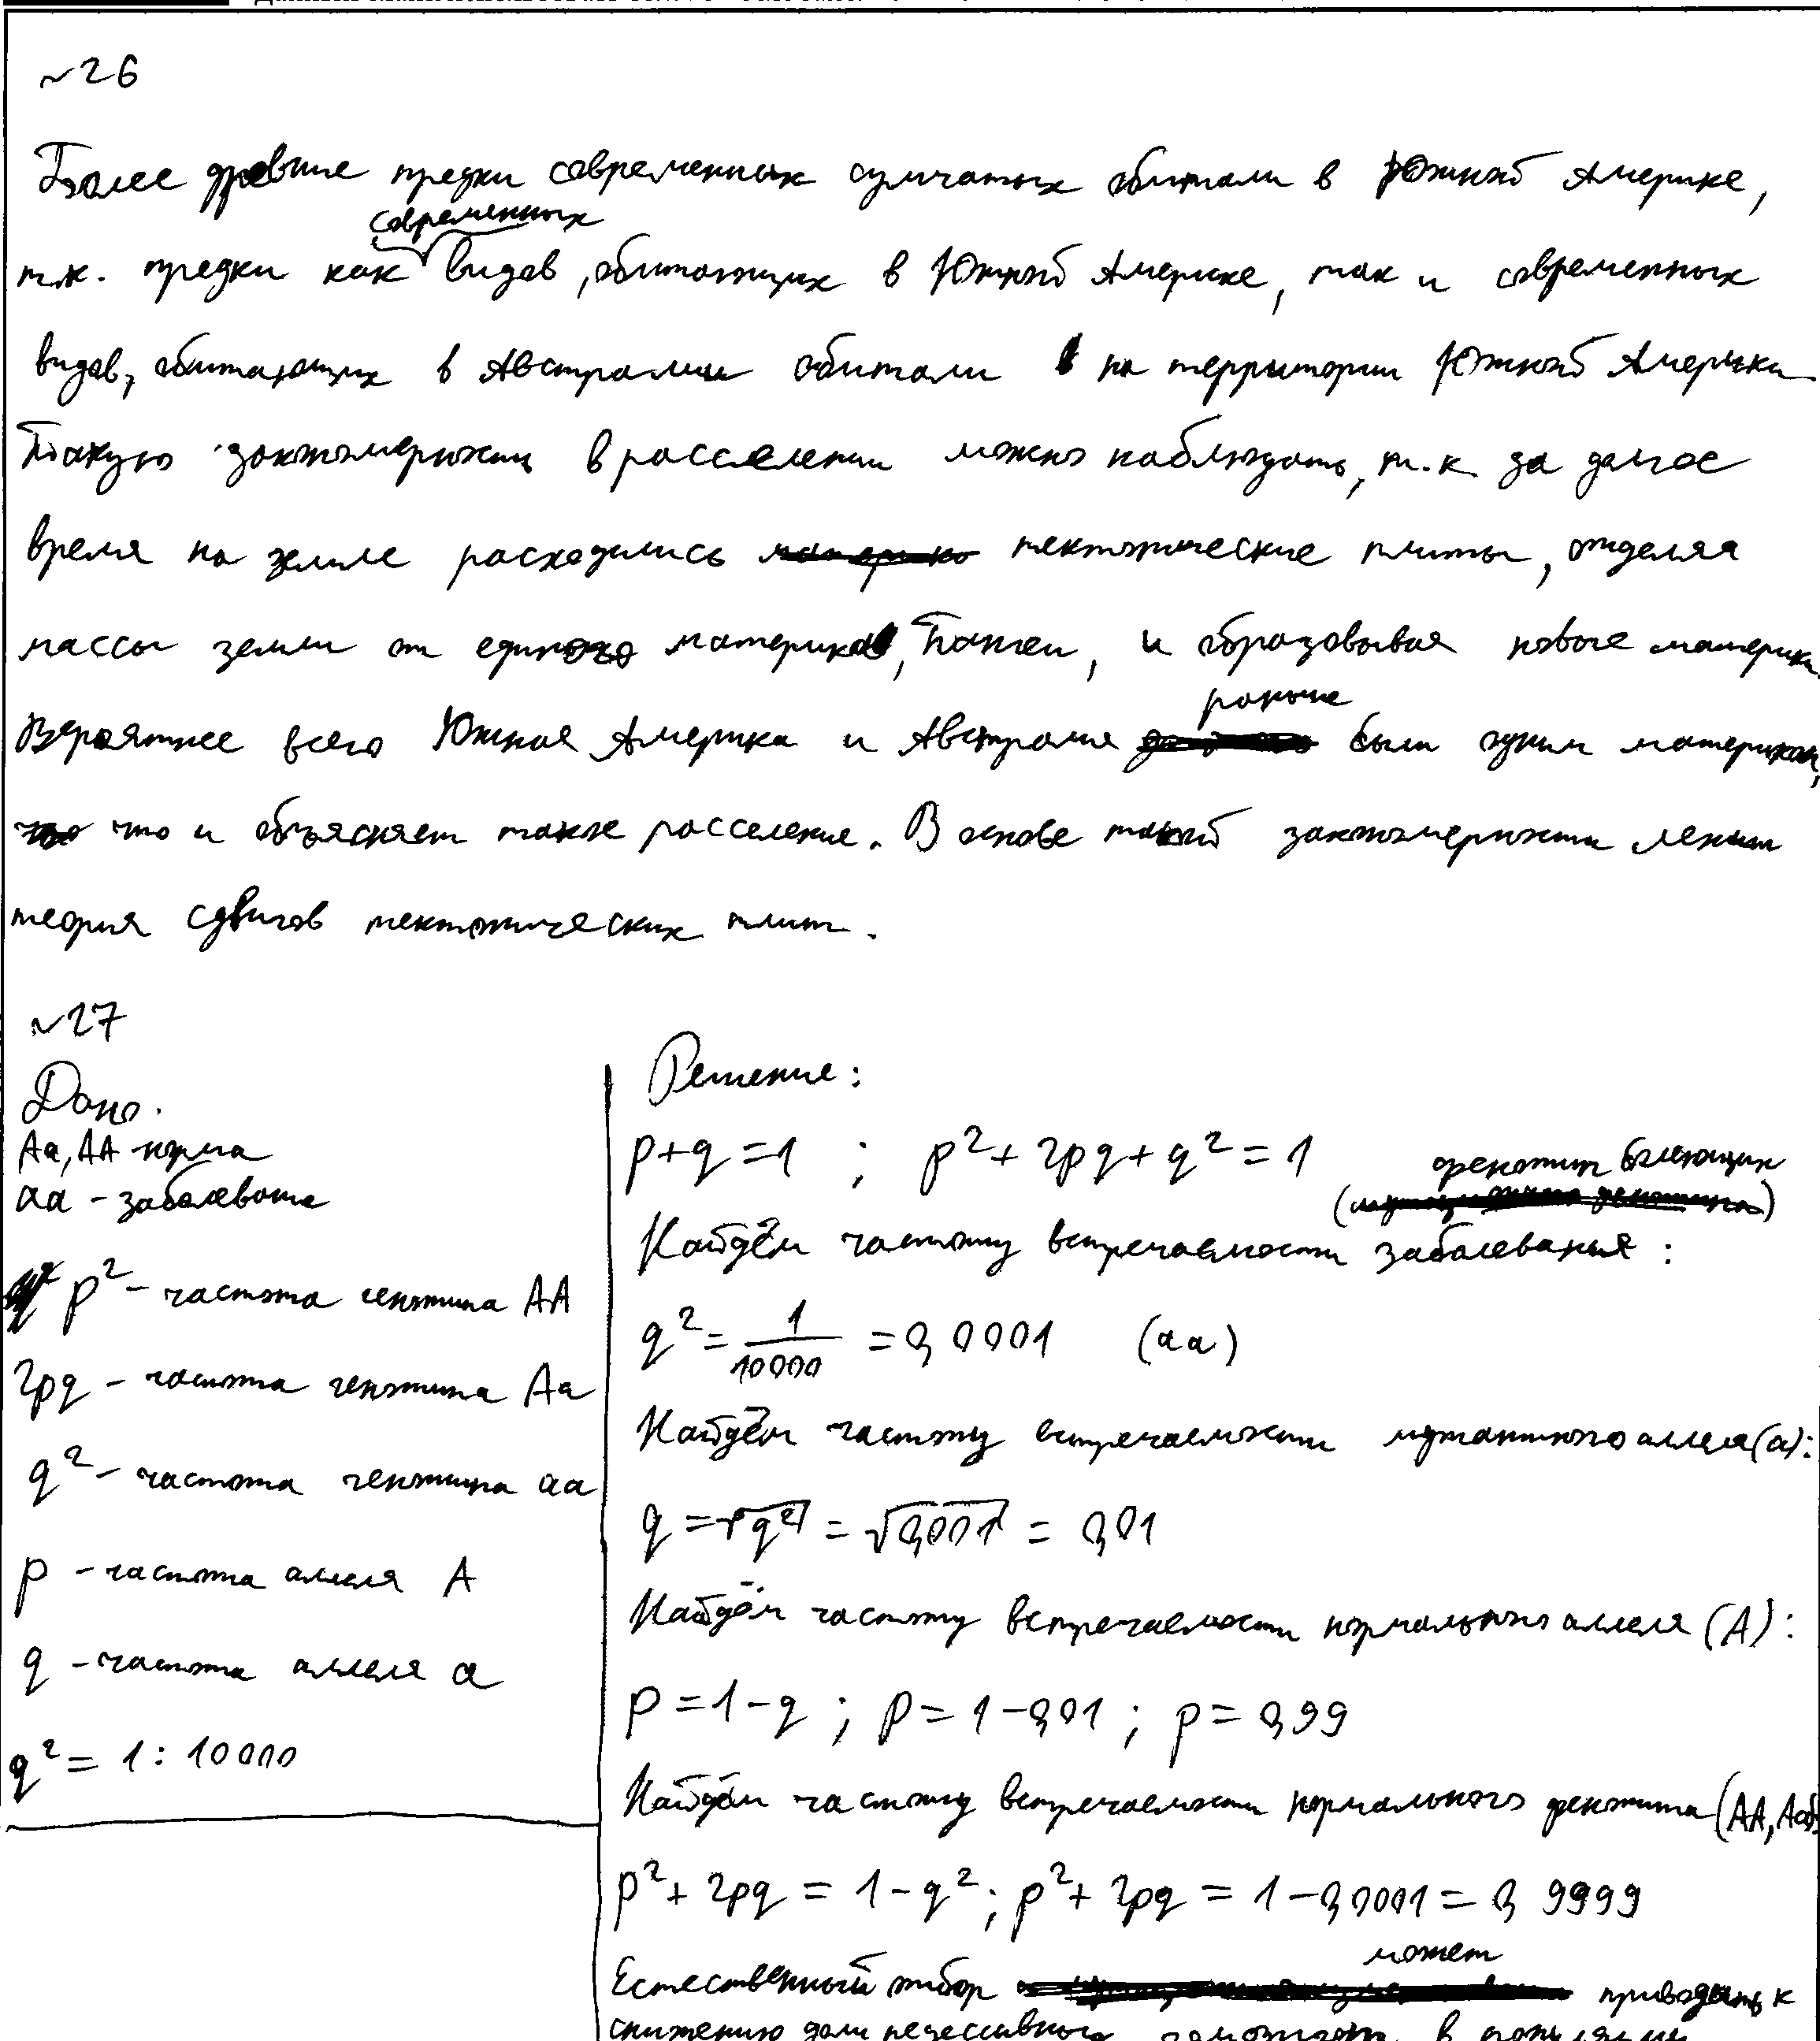 ~26
Более древние предки современных сумчатых обитали в Южной Америке,
т.к. предки как современных видов, обитающих в Южной Америке, так и современных
видов, обитающих в Австралии обитали на территории Южной Америки
Такую закономерность в расселении можно наблюдать, т.к. за долгое
время на земле расходились тектонические плиты, отделяя
массы земли от единого материка, Пангеи, и образовывая новые материки.
Вероятнее всего Южная Америка и Австралия раньше были одним материком,
что и объясняет такое расселение. В основе такой закономерности лежит
теория сдвигов тектонических плит.
~27
Дано.
Aa, AA - норма
aa - заболевание
p² - частота генотипа AA
2pq - частота генотипа Aa
q² - частота генотипа aa
p - частота аллеля A
q - частота аллеля a
q² = 1 : 10000
Решение:
p+q=1 ; p²+2pq+q²=1
Найдём частоту встречаемости заболевания (фенотип болеющих):
q² = 1/10000 = 0,0001 (aa)
Найдём частоту встречаемости мутантного аллеля (a):
q = √q² = √0,0001 = 0,01
Найдём частоту встречаемости нормального аллеля (A):
p = 1-q ; p = 1-0,01 ; p = 0,99
Найдём частоту встречаемости нормального фенотипа (AA, Aa):
p² + 2pq = 1 - q² ; p² + 2pq = 1 - 0,0001 = 0,9999
Естественный отбор может приводить к
снижению доли рецессивных в популяции